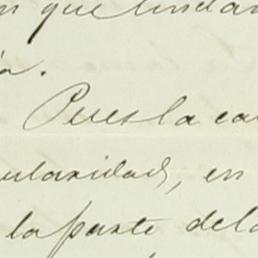 que lindan
a.
Pues la ca
ularidad, en
la parte de la